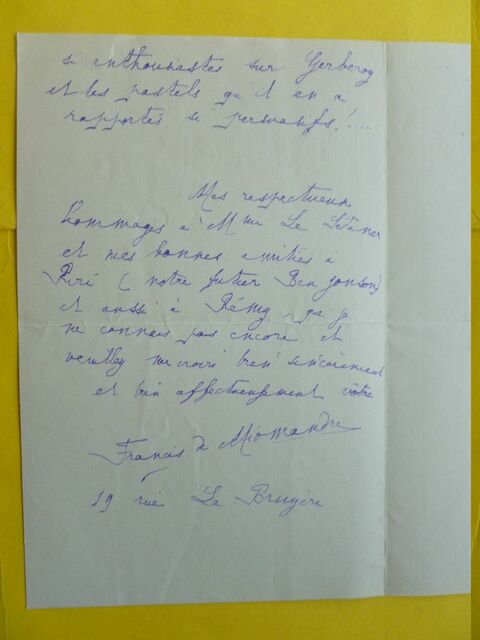 si enthousiastes sur Gerberoy
et les pastels qu'il en a
rapportés si persuasifs!....
Mes respectueux
hommages à Mme Le Sidaner
et mes bonnes amitiés à
Riri (notre futur Ben Jonson)
et aussi à Rémy, que je
ne connais pas encore et
veuillez me croire bien sincèrement
et bien affectueusement vôtre
Francis de Miomandre
19 rue La Bruyère